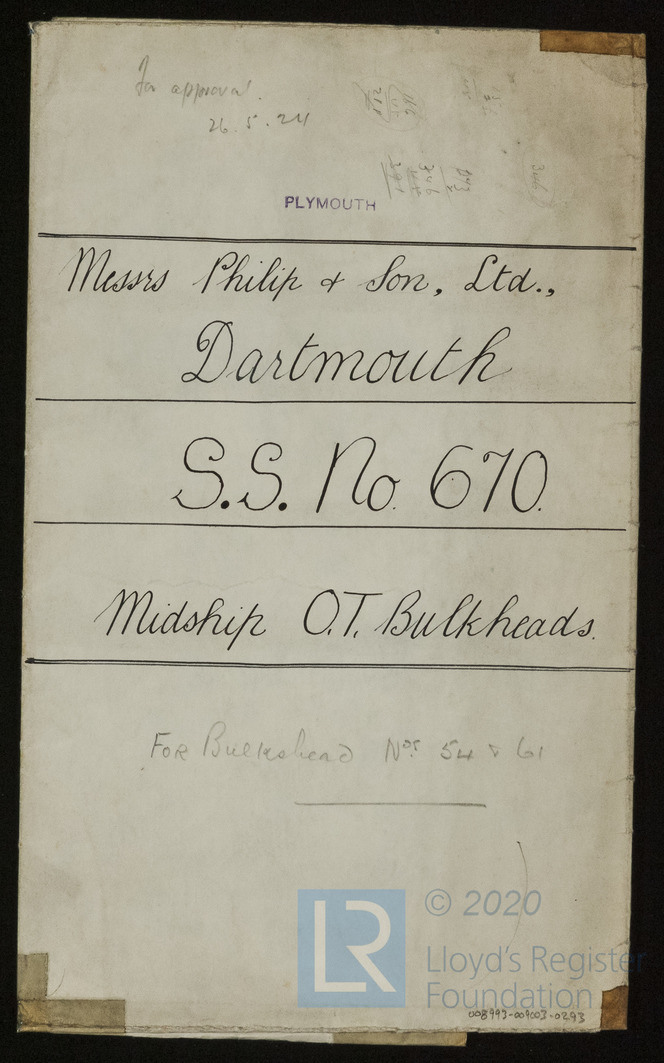 For approval.
26.5.24
PLYMOUTH
Messrs Philip & Son, Ltd.,
Dartmouth
S.S. No. 670.
Midship O.T. Bulkheads.
For Bulkshead Nos. 54 & 61
LR
© 2020
Lloyd's Register
Foundation
008993-009003-0293